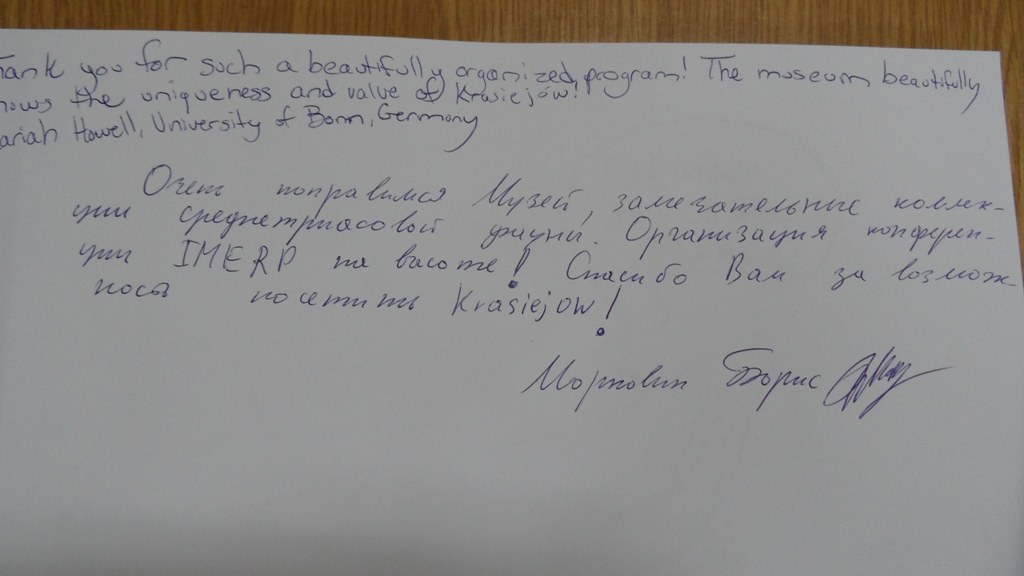 hank you for such a beautifully organized program! The museum beautifully
hows the uniqueness and value of Krasiejów!
ariah Howell, University of Bonn, Germany
Очень понравился Музей, замечательные коллек-
ции среднетриасовой фауны. Организация конферен-
ции IMERP на высоте! Спасибо Вам за возмож-
ность посетить Krasiejow!
Морковин Борис